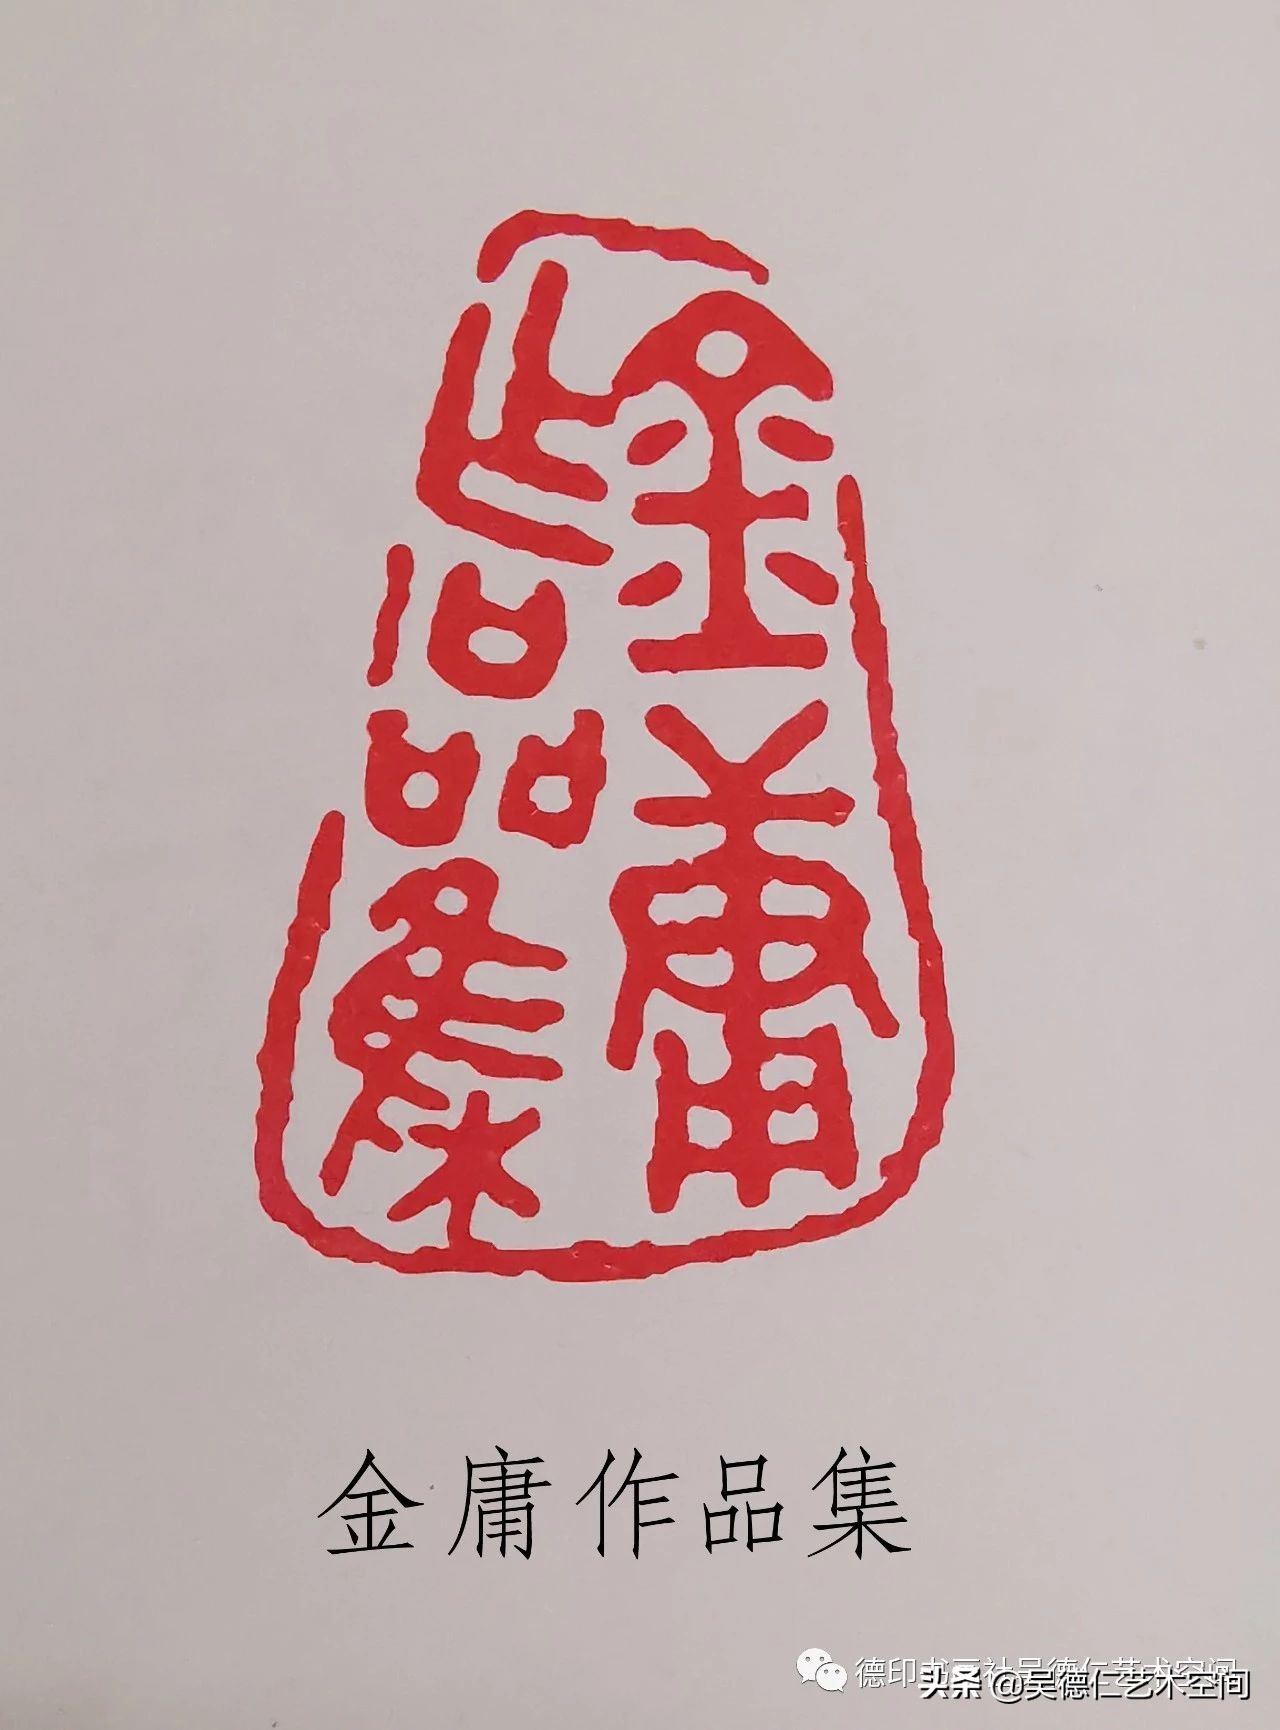 金庸作品集
金庸作品集
德印书画社吴德仁艺术空间
头条 @吴德仁艺术空间